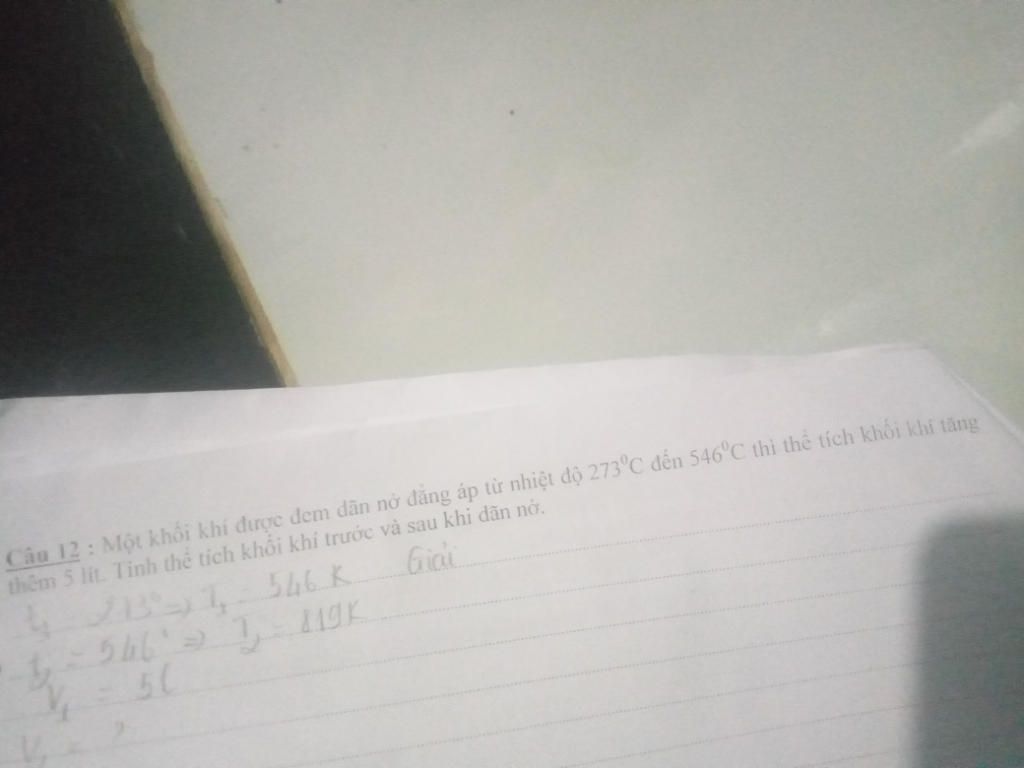 Câu 12 : Một khối khí được đem dãn nở đẳng áp từ nhiệt độ 273⁰C đến 546⁰C thì thể tích khối khí tăng
thêm 5 lít. Tính thể tích khối khí trước và sau khi dãn nở.
Giải
t₁ = 273° => T₁ = 546 K
t₂ = 546° => T₂ = 819K
V₁ = 5l
V₂ = ?